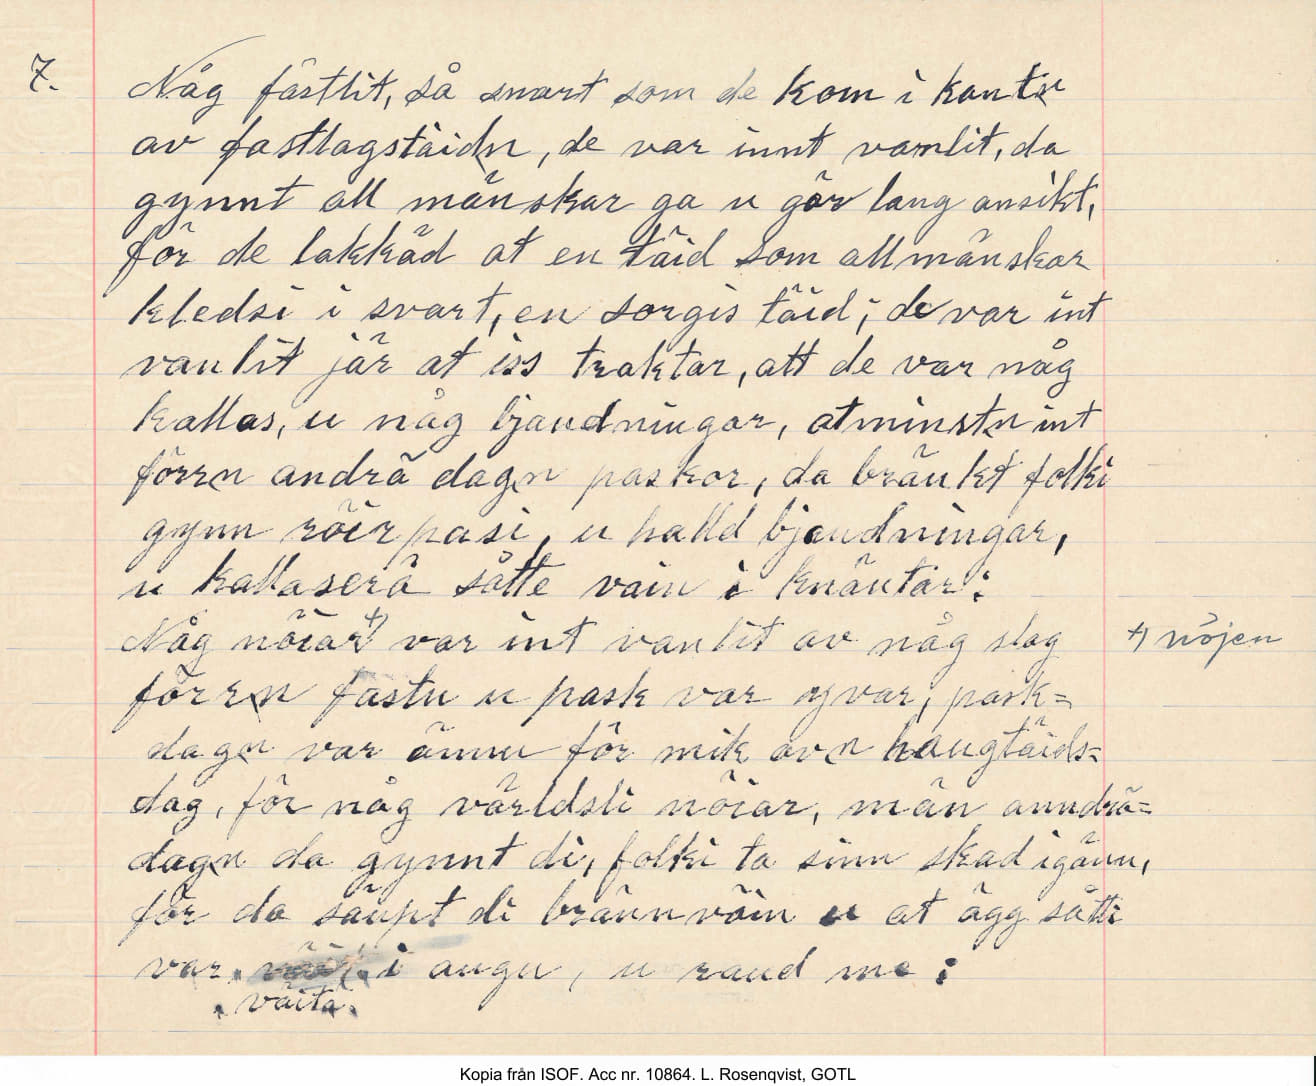 7.
Någ fästlit, så snart som de kom i kantn
av fastlagstäidn, de var innt vanlit, da
gynnt all mänskar ga u gör lang ansikt,
för de lakkäd at en täid som all mänskar
kledsi i svart, en sorgis täid; de var int
vanlit jär at iss traktar, att de var någ
kallas, u någ bjaudningar, atminstn int
förrn andrä dagn paskar, da bräukt folki
gynn röir pasi, u halld bjaudningar,
u kallaserä sätte vain i knäutar:
Någ nöiar +) var int vanlit av någ slag
+) nöjen
förrn fastu u pask var yvar, pask=
dagn var ännu för mik avn haugtäids=
dag, för någ världsli nöiar, män anndrä=
dagn da gynnt di, folki ta sinn skad igänn,
för da säupt di brännväin u at ägg sätti
var i augu, u raud me:
väita
Kopia från ISOF. Acc nr. 10864. L. Rosenqvist, GOTL